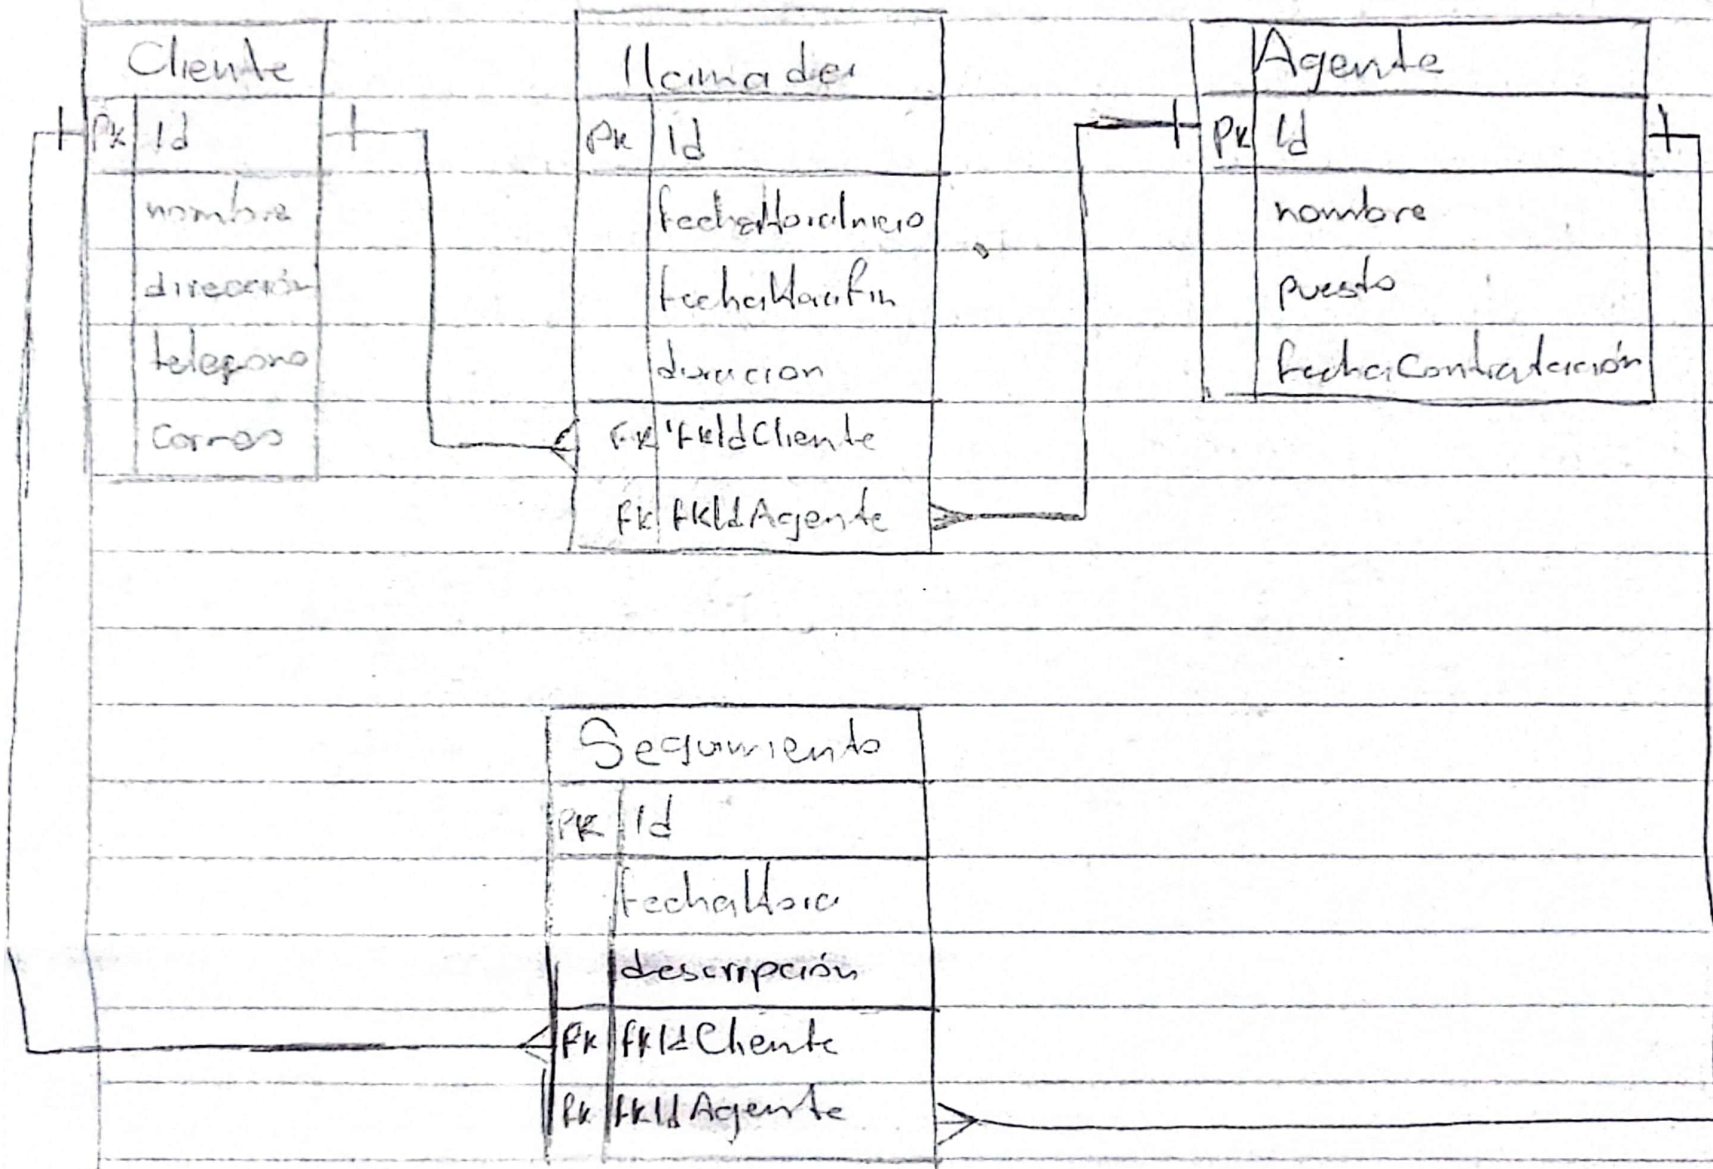 Cliente
Pk Id
nombre
dirección
telefono
correo
llamada
Pk Id
fechaHoraInicio
fechaHoraFin
duracion
Fk fkIdCliente
fk fkIdAgente
Agente
Pk Id
nombre
puesto
fechaContratación
Seguimiento
PK Id
fechaHora
descripción
fk fkIdCliente
fk fkIdAgente